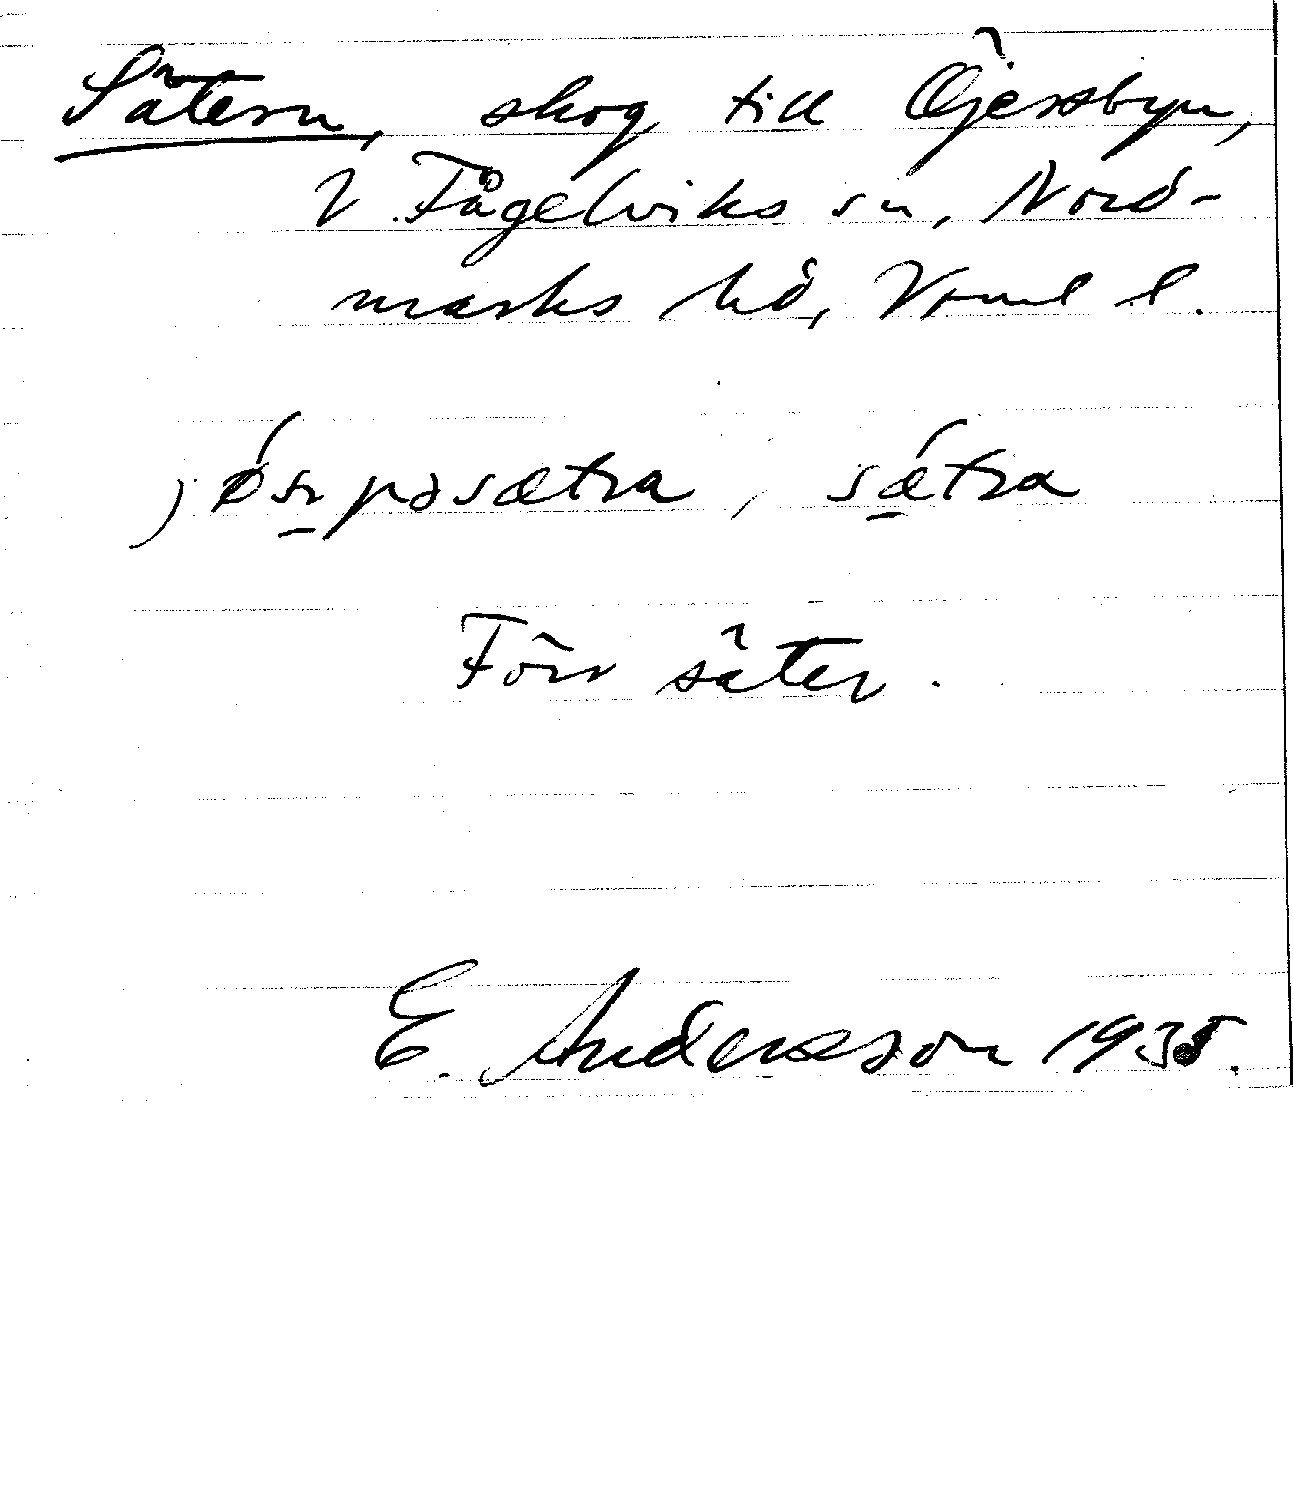 Sätern, skog till Öjersbyn,
V Fågelviks sn, Nord-
marks hd, Värml l.
sǽtra
Förr säter.
E. Andersson 1935.